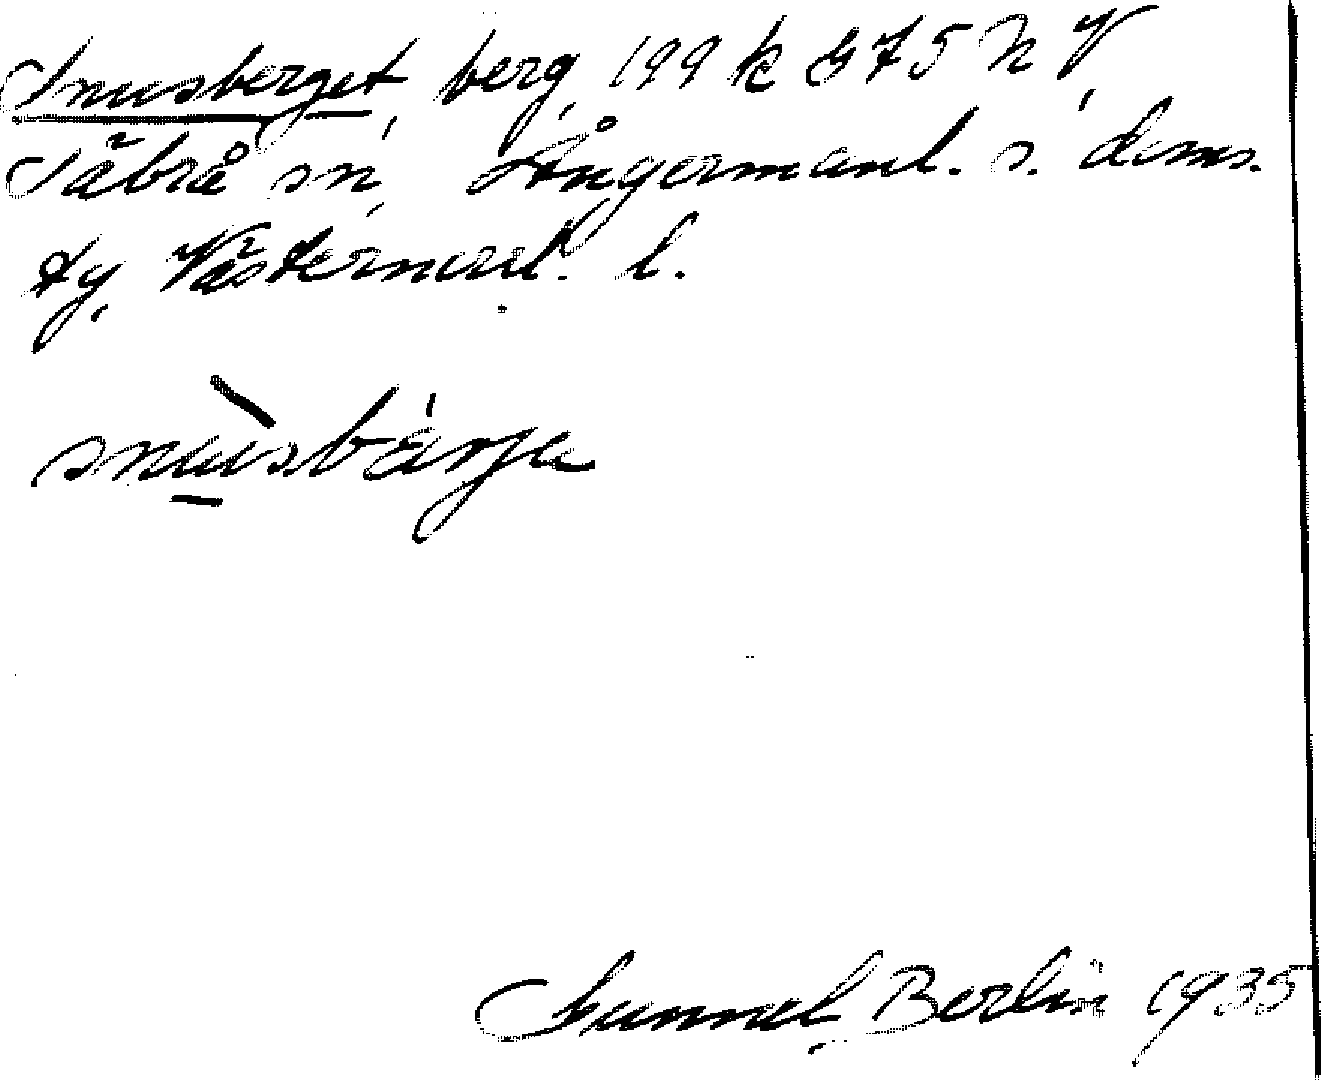 Snusberget, berg, 199 k G75 N V,
Säbrå sn, Ångermanl. s. doms.
ty, Västernorrl. l.
snusbärje
Gunnel Berlin 1935